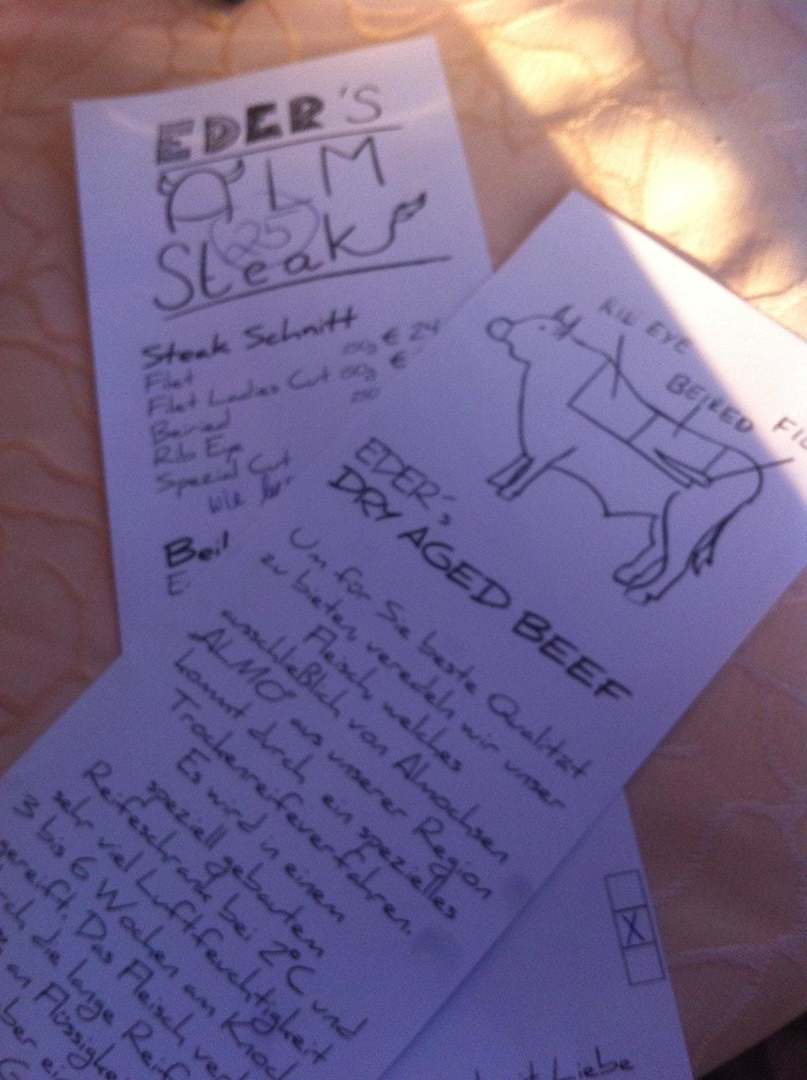 EDER'S
ALM
25
Steak
Steak Schnitt
Filet € 24
Filet Ladies Cut 150g €
Beiried 250
Rib Eye
Spezial Cut
wie
Beil
E
RIB EYE
BEIRED
FIL
EDER'S
DRY AGED BEEF
Um für Sie beste Qualität
zu bieten veredeln wir unser
Fleisch, welches
ausschließlich von Almochsen
ALMO aus unserer Region
kommt durch ein spezielles
Trockenreifeverfahren.
Es wird in einem
speziell gebauten
Reifeschrank bei 2°C und
sehr viel Luftfeuchtigkeit
3 bis 6 Wochen am Knoch
gereift. Das Fleisch verl
rch die lange Reif
an Flüssighe
ber ei
X
Liebe